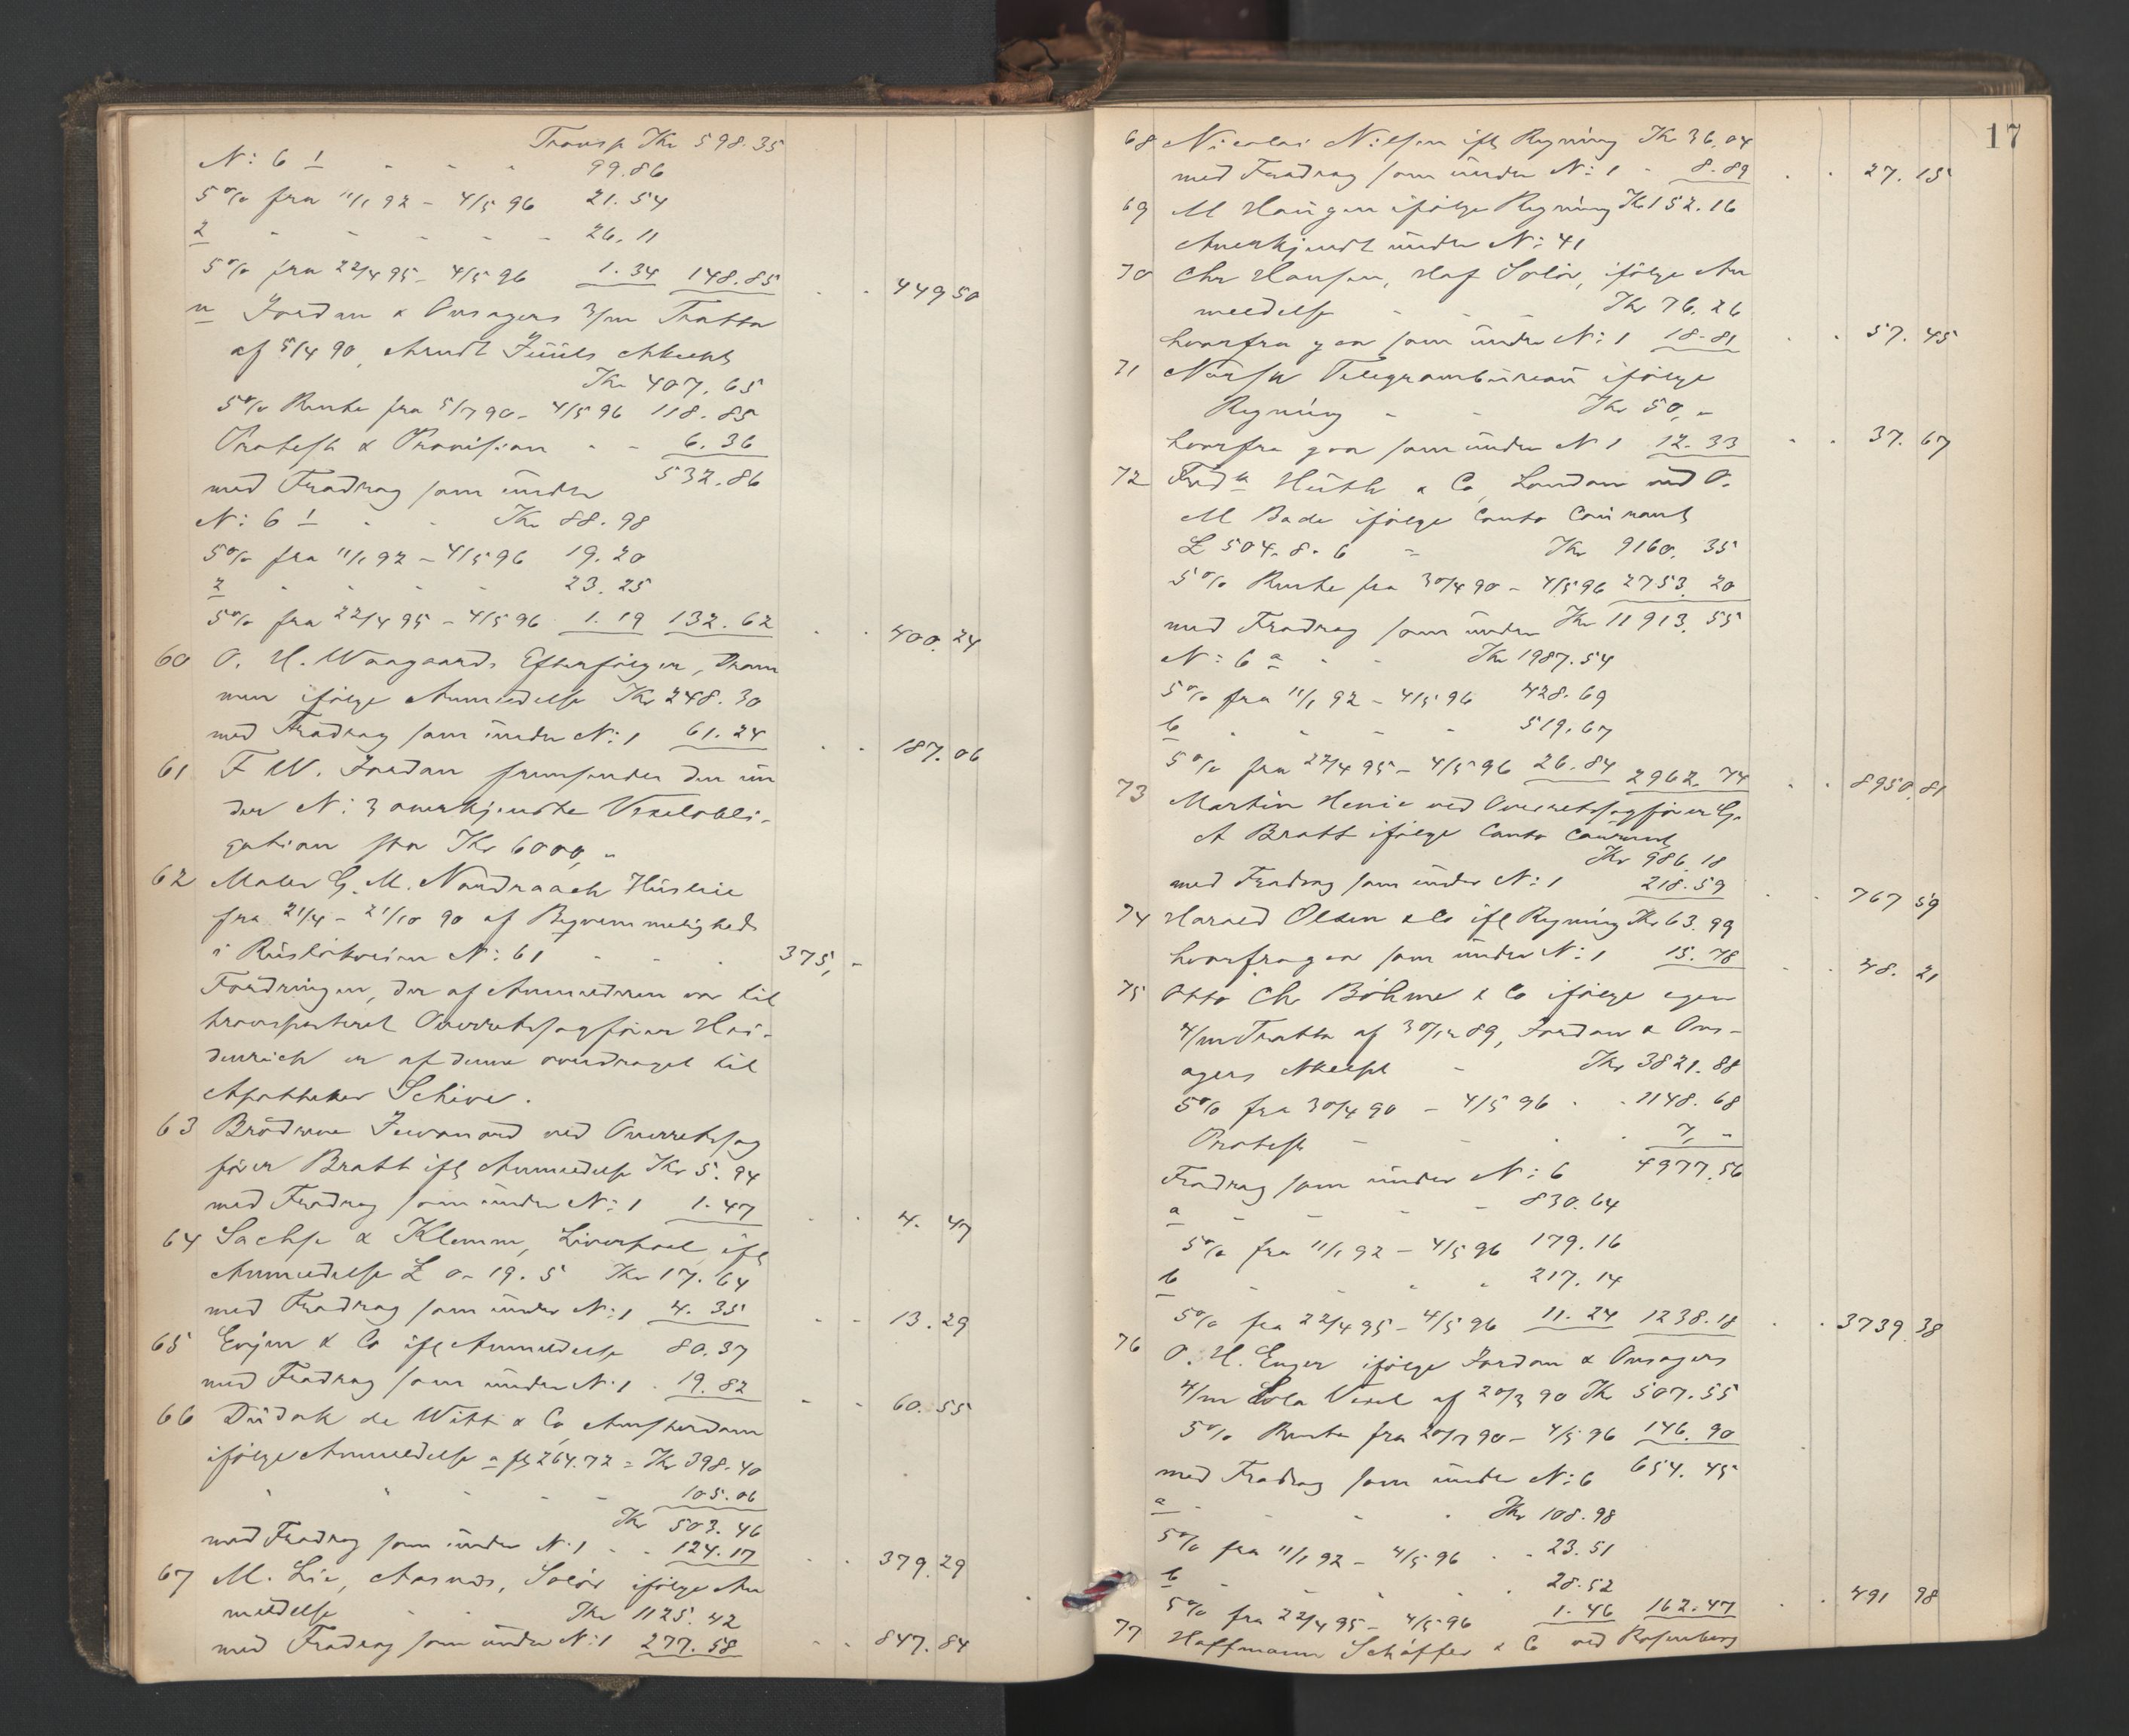 Transp Kr 598.35
N: 6 1 - - - 99.86
5% fra 11/1 92 - 4/5 96 21.54
2 - - - - - 26.11
5% fra 22/4 95 - 4/5 96 1.34 148.85 - - 449 50
n Jordan & Onsagers 3/m Tratta
af 5/4 90, Arndt Juuls Akcept
Kr 407.65
5% Rente fra 5/7 90 - 4/5 96 118.85
Protest & Provision - - 6.36
532.86
med Fradrag som under
N: 6 1 - - Kr 88.98
5% fra 11/1 92 - 4/5 96 19.20
2 - - - - - 23.25
5% fra 22/4 95 - 4/5 96 1.19 132.62 - - 400.24
60 O. H. Waagaards Efterfølger, Dram
men ifølge Anmeldelse Kr 248.30
med Fradrag som under N: 1 61.24 - - 187.06
61 F W. Jordan fremsender den un
der N: 3 anerkjendte Vexelobli-
gation stor Kr 6000, -
62 Maler G. M. Nordraach Husleie
fra 21/4 - 21/10 90 af Beqvemmelighed
i Rusløkveien N: 61 - - - 375, -
Fordringen, der af Anmelderen var til
transporteret Overretssagfører Hei-
denreich er af denne overdraget til
Apotheker Schive.
63 Brødrene Juvonard ved Overretssag
fører Bratt ifl Anmeldelse Kr 5.94
med Fradrag som under N: 1 1.47 - - 4. 47
64 Sachse & Klemm, Liverpool, ifl
Anmeldelse £ 0 - 19. 5 Kr 17.64
med Fradrag som under N: 1 4.35 - - 13.29
65 Evjen & Co ifl Anmeldelse 80.37
med Fradrag som under N: 1 19.82 - - 60.55
66 Dudok de Witt & Co, Amsterdam
ifølge Anmeldelse a fl 264.72 = Kr 398.40
" " - - - 105.06
Kr 503.46
med Fradrag som under N: 1 - - 124.17 - - 379.29
67 M. Lie, Aasnes, Solør ifølge An
meldelse - - Kr 1125.42
med Fradrag som under N: 1 277.58 - - 847.84
17
68 Nicolai Nilsen ifl Regning Kr 36.04
med Fradrag som under N: 1 - 8.89 - - 27.15
69 M Haugen ifølge Regning Kr 152.16
Anerkjendt under N: 41
70 Chr Hansen, Hof Solør, ifølge An
meldelse - - - Kr 76.26
hvorfra gaar som under N: 1 18.81 - - 57.45
71 Norsk Telegrambureau ifølge
Regning - - Kr 50, -
hvorfra gaar som under N 1 12.33 - - 37.67
72 Fredk Huth & Co, London ved O.
M Bade ifølge Conto Courant
£ 504. 8. 6 - Kr 9160.35
5% Rente fra 30/4 90 - 4/5 96 2753.20
med Fradrag som under Kr 11913.55
N: 6 a - - Kr 1987.54
5% fra 11/1 92 - 4/5 96 428.69
b - - - - 519.67
5% fra 22/4 95 - 4/5 96 26.84 2962.74 - - 8950.81
73 Martin Henie ved Overretssagfører G.
A Bratt ifølge Conto Courant
Kr 986.18
med Fradrag som under N: 1 218.59 - - 767 59
74 Harald Olsen & Co ifl Regning Kr 63.99
hvorfra gaar som under N: 1 15.78 - - 48.21
75 Otto Chr Böhme & Co ifølge egen
4/m Tratta af 30/12 89, Jordan & Ons-
agers Akcept - Kr 3821.88
5% fra 30/4 90 - 4/5 96 - - 1148.68
Protest - - - - 7, -
Fradrag som under N: 6 4977.56
a - - - - 830.64
5% fra 11/1 92 - 4/5 96 179.16
b - - - - 217.14
5% fra 22/4 95 - 4/5 96 11.24 1238.18 - - 3739.38
76 O. H. Enger ifølge Jordan & Onsagers
4/m Sola Vexel af 20/3 90 Kr 507.55
5% Rente fra 20/7 90 - 4/5 96 146.90
med Fradrag som under N: 6 654.45
a - - - - Kr 108.98
5% fra 11/1 92 - 4/5 96 - - 23.51
b - - - - 28.52
5% fra 22/4 95 - 4/5 96 1.46 162.47 - - 491 98
77 Hoffmann Schäffer & Co ved Rosenberg